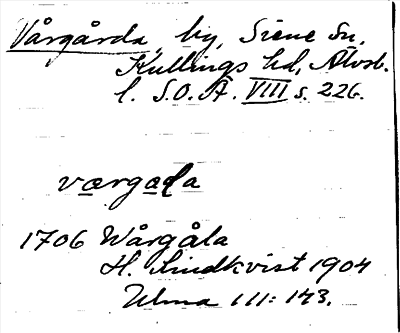 Vårgårda, by, Siene sn,
Kullings hd, Älvsb.
l. S.O.Ä. VIII s. 226.
værgaḷa
1706 Wårgåla
H. Lindkvist 1904
Ulma 111:143.